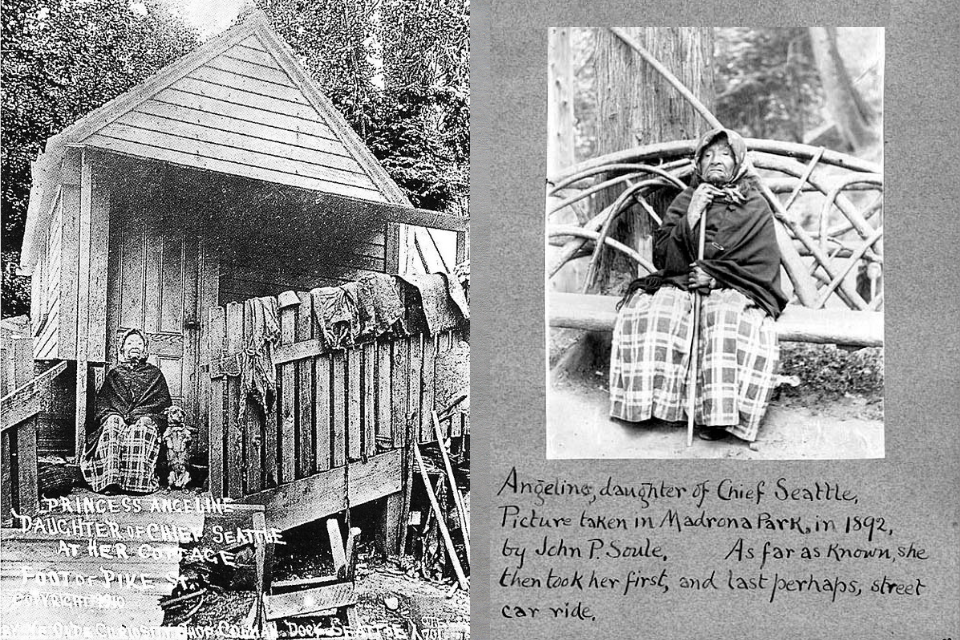 PRINCESS ANGELINE
DAUGHTER OF CHIEF SEATTLE
AT HER COTTAGE
FOOT OF PIKE ST.
COPYRIGHT 1910
OLDE CURIOSITY SHOP COLMAN DOCK SEATTLE
Angeline, daughter of Chief Seattle,
Picture taken in Madrona Park, in 1892,
by John P. Soule. As far as known, she
then took her first, and last perhaps, street
car ride.